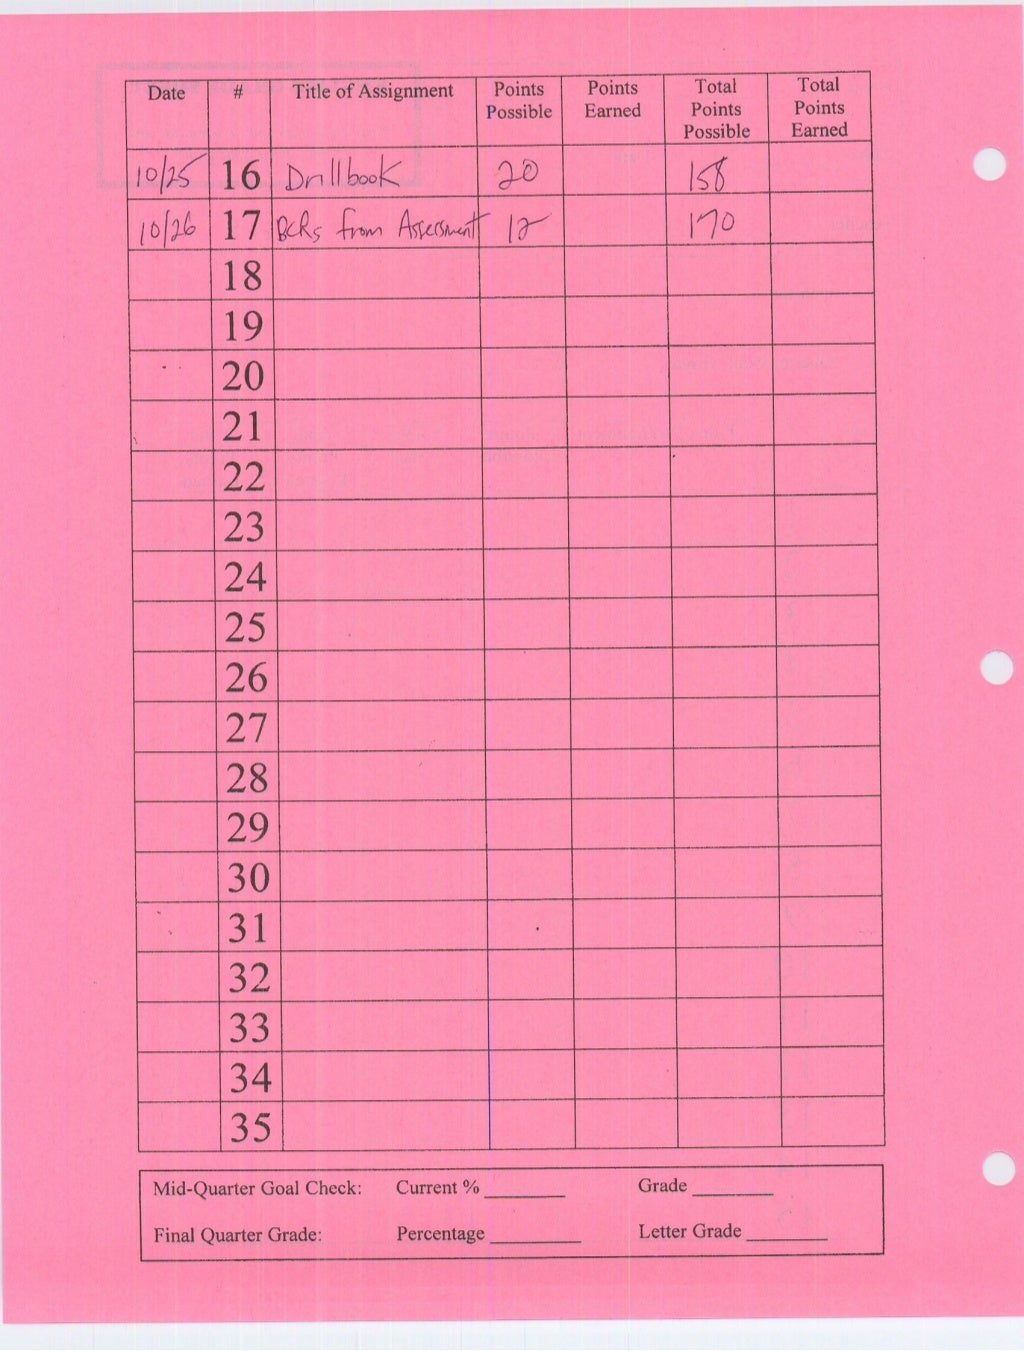 Date # Title of Assignment Points Possible Points Earned Total Points Possible Total Points Earned
10/25 16 Drillbook 20 158
10/26 17 BCRs from Assessment 12 170
18
19
20
21
22
23
24
25
26
27
28
29
30
31
32
33
34
35
Mid-Quarter Goal Check: Current % ________ Grade ________
Final Quarter Grade: Percentage _________ Letter Grade ________